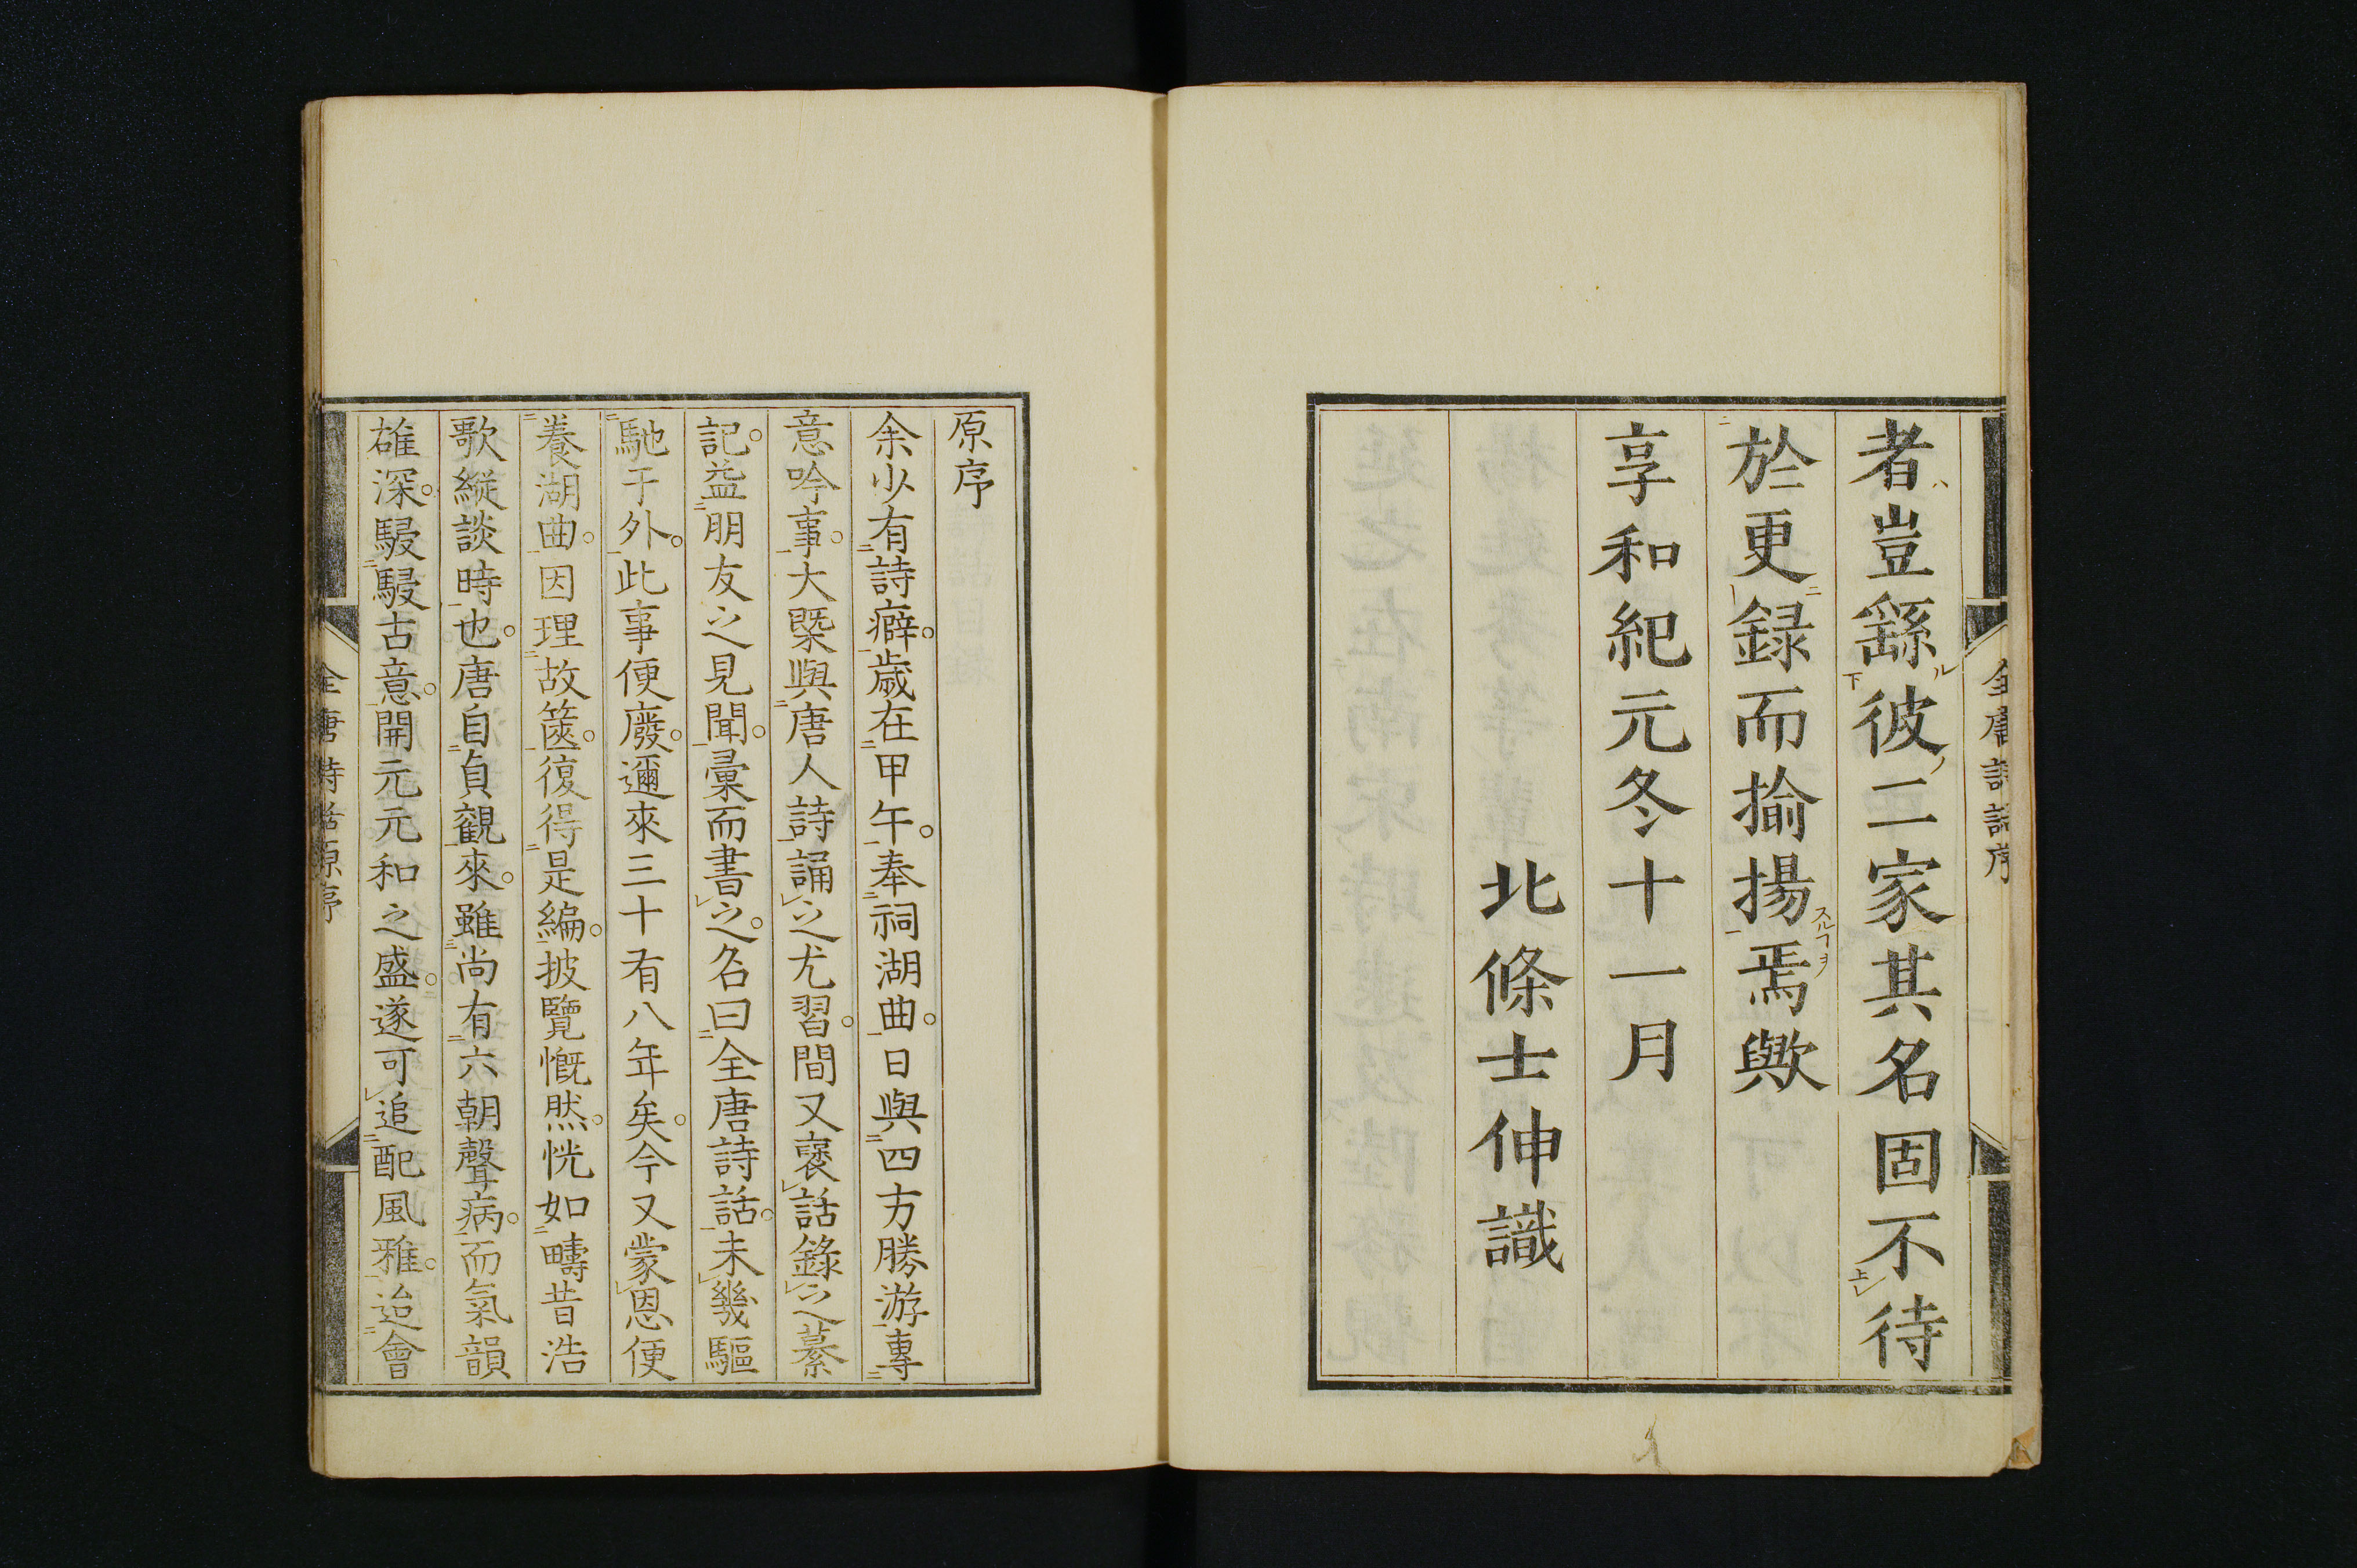 者豈繇彼二家其名固不待
於更録而揄揚焉歟
享和紀元冬十一月
北條士伸識
全唐詩話序
原序
余少有詩癖。歳在甲午。奉祠湖曲。日與四方勝游專
意吟事。大槩與唐人詩誦之尤習。間又褒話錄之纂
記。益朋友之見聞。彙而書之。名曰全唐詩話。未幾驅
馳于外。此事便廢。邇來三十有八年矣。今又蒙恩便
養湖曲。因理故篋。復得是編。披覽慨然。恍如疇昔浩
歌縦談時也。唐自貞觀來。雖尚有六朝聲病。而氣韻
雄深。駸駸古意。開元元和之盛。遂可追配風雅。迨會
全唐詩話原序